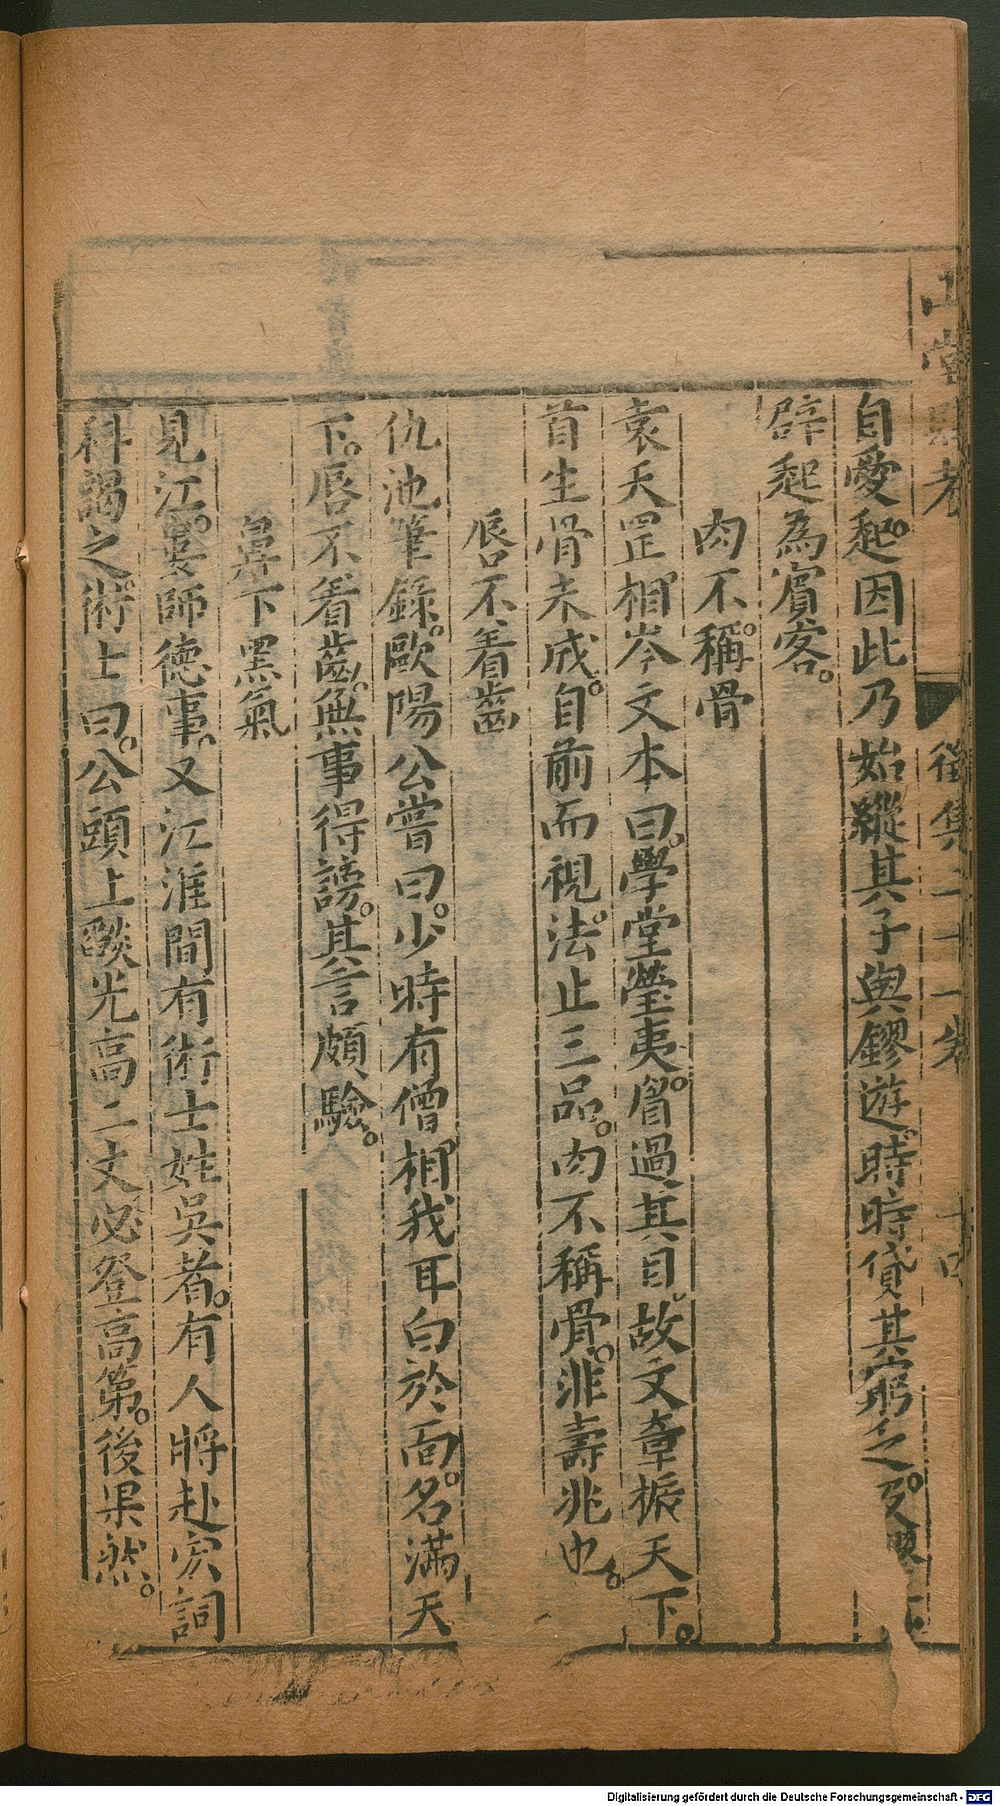 山堂肆考　徵集二十一卷　十四
自愛起因此乃始縱其子與鏐遊時時貸其窮乏及
辟起為賓客
肉不稱骨
袁天罡相岑文本曰學堂瑩夷眉過其目故文章振天下
首生骨未成自前而視法止三品肉不稱骨非壽兆也
唇不着齒
仇池筆錄歐陽公嘗曰少時有僧相我耳白於面名滿天
下唇不着齒無事得謗其言頗驗
鼻下黑氣
見江婁師德事又江淮間有術士姓吳者有人將赴宏詞
科謁之術士曰公頭上燄光高二丈必登高第後果然
Digitalisierung gefördert durch die Deutsche Forschungsgemeinschaft - DFG